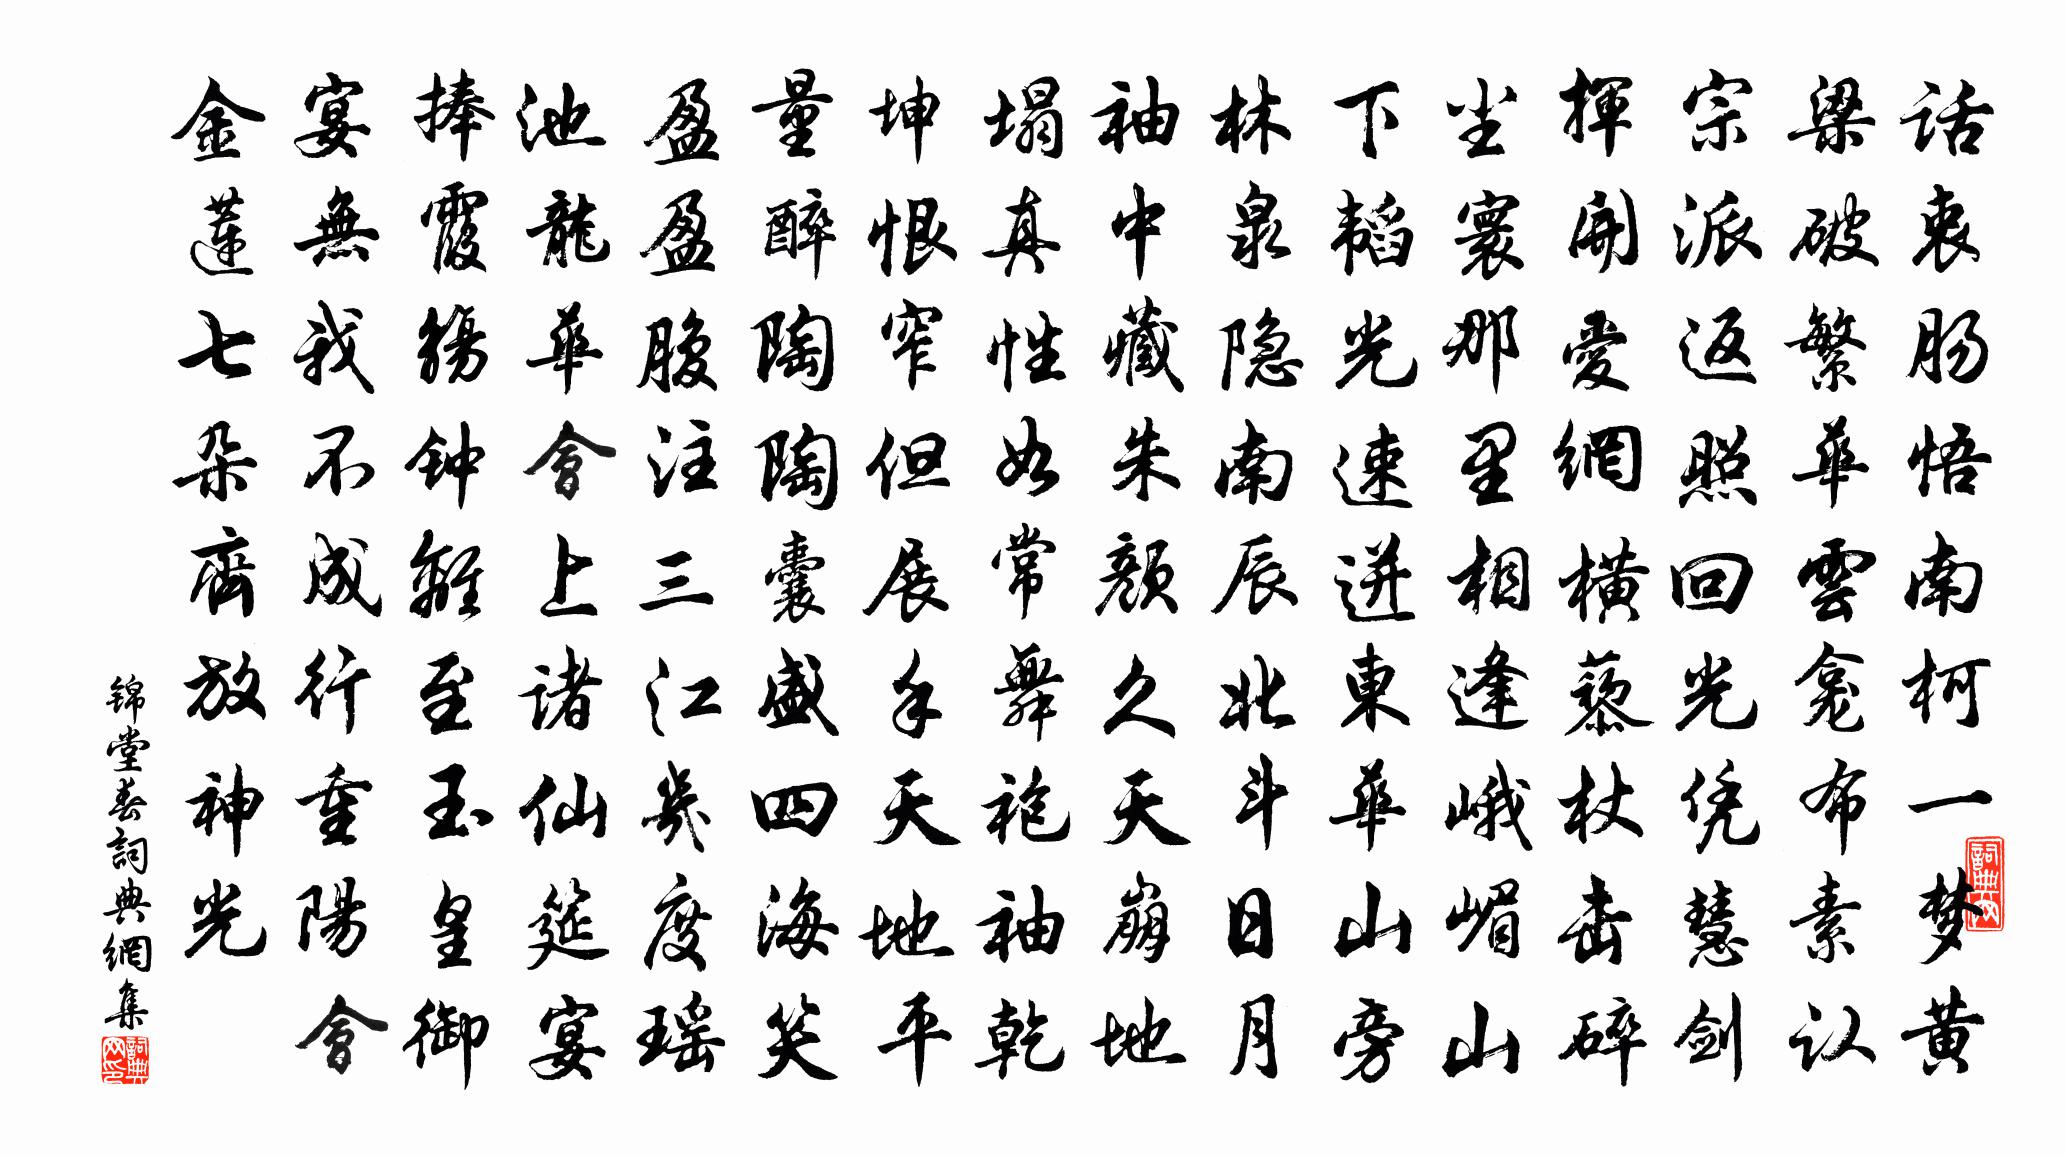 话衷肠悟南柯一梦黄
梁破繁華雲龛布素认
宗派返照回光凭慧剑
揮開愛網橫藜杖击碎
尘寰那里相逢峨嵋山
下韬光速迸東華山旁
林泉隐南辰北斗日月
袖中藏朱颜久天崩地
塌真性如常舞袍袖乾
坤恨窄但展手天地平
量醉陶陶囊盛四海笑
盈盈腹注三江幾度瑶
池龍華會上诸仙筵宴
捧霞觞钟離至玉皇御
宴無我不成行重陽會
金莲七朵齊放神光
锦堂春詞典網集
詞典网
詞典网印